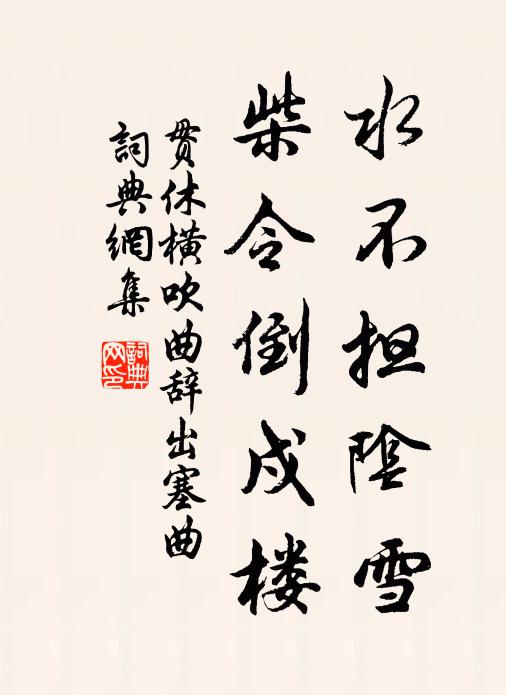 水不担陰雪
柴令倒戍楼
贯休横吹曲辞出塞曲
詞典網集
詞典網印